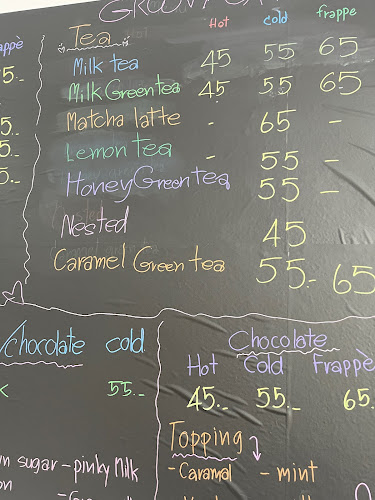 Tea Hot cold frappe
Milk tea 45 55 65
Milk Green tea 45 55 65
Matcha latte - 65 -
Lemon tea - 55 -
Honey Green tea - 55 -
Nested 45
Caramel Green tea 55.- 65
appè
5.-
5.-
5.-
5.-
/chocolate cold
55.-
sugar - pinky Milk
Chocolate
Hot Cold Frappè
45.- 55.- 65.
Topping
- Caramal - mint